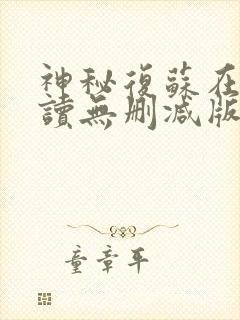 神秘復蘇在
讀無刪減版
童章平